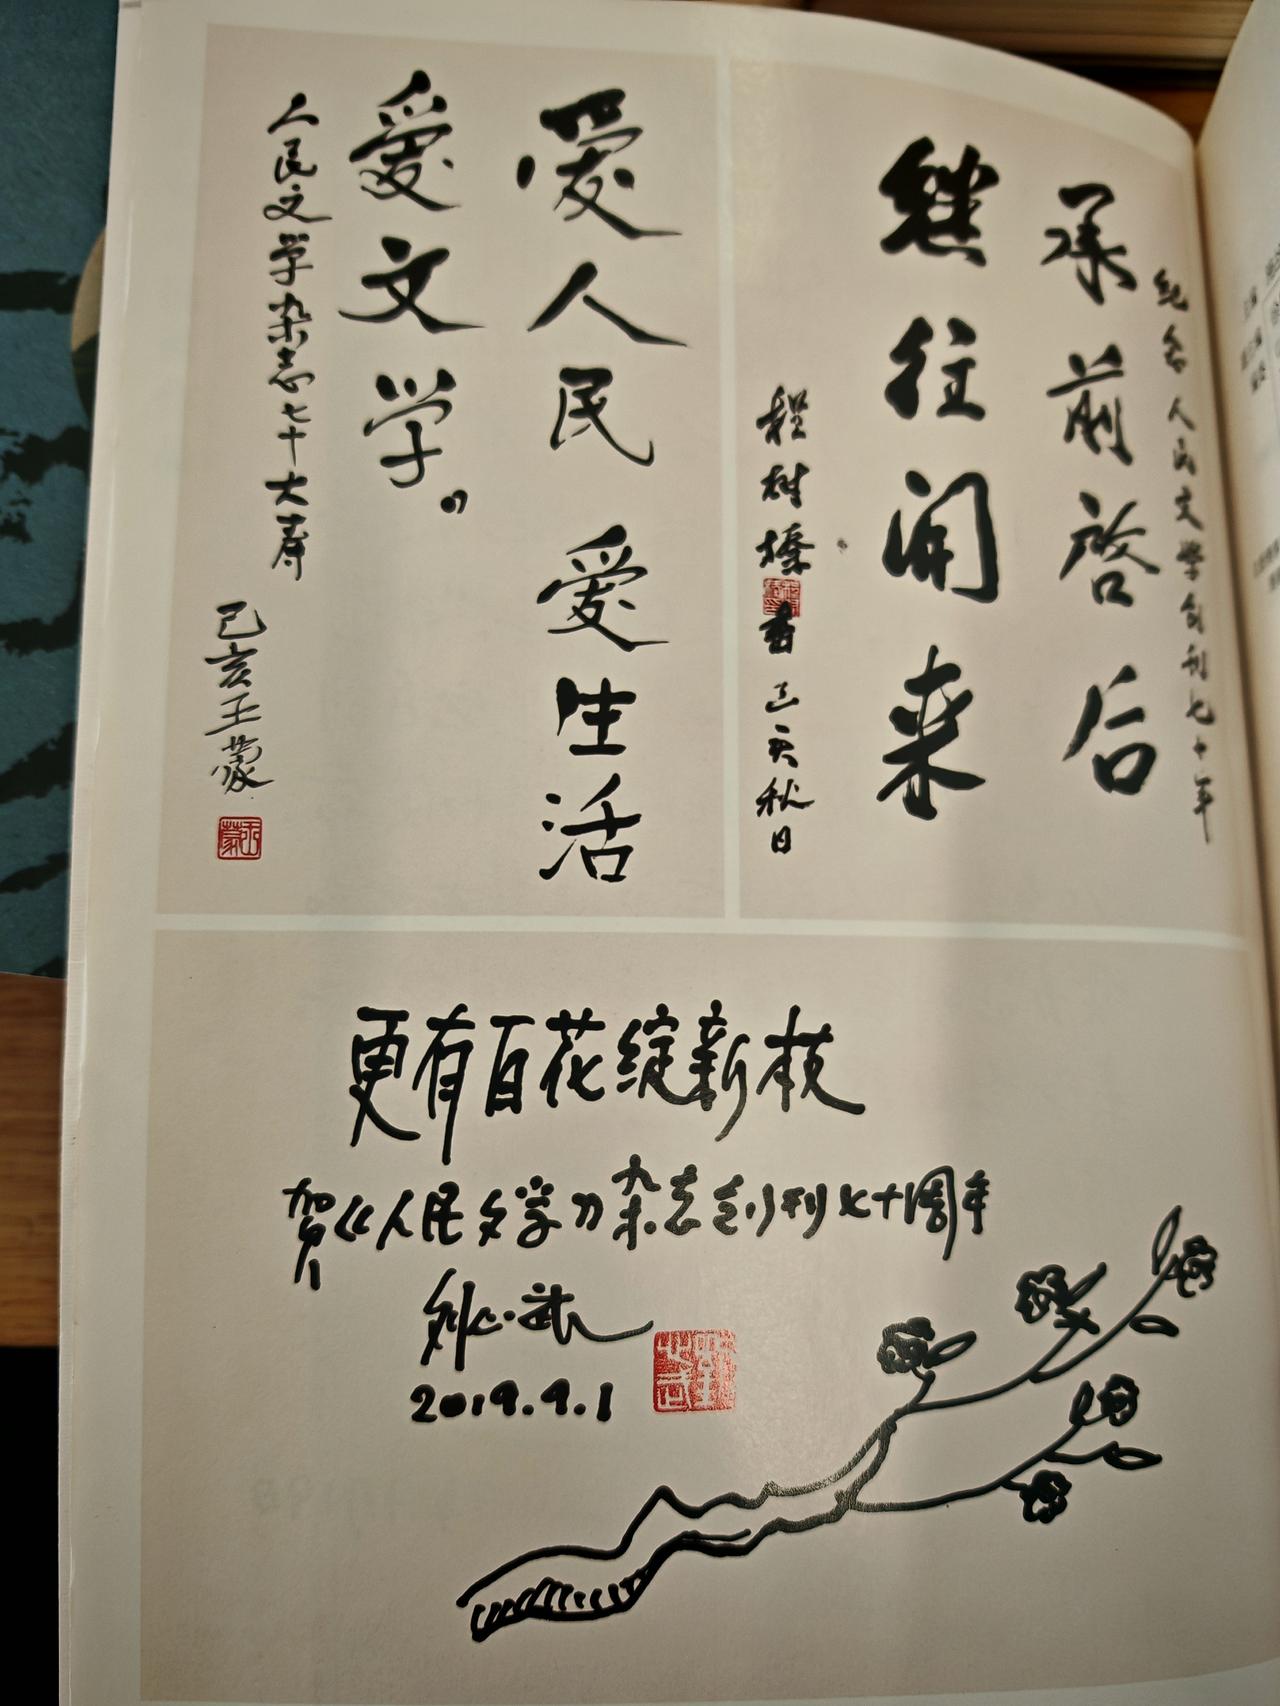 爱人民 爱生活
爱文学。
人民文学杂志七十大寿
己亥王蒙
王蒙
纪念人民文学创刊七十年
承前啓后
继往開来
程树榛书 己亥秋日
更有百花绽新枝
贺《人民文学》杂志创刊七十周年
刘心武
2019.9.1